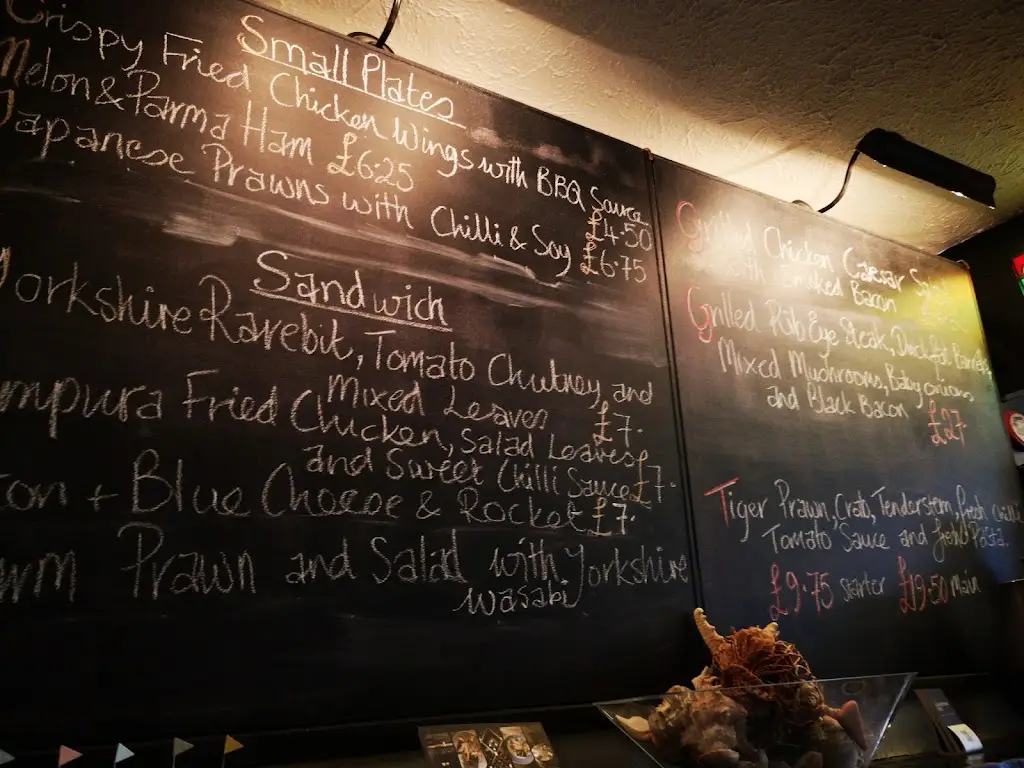 Small Plates
Crispy Fried Chicken Wings with BBQ Sauce
£4.50
Melon & Parma Ham £6.25
Japanese Prawns with Chilli & Soy £6.75
Sandwich
Yorkshire Rarebit, Tomato Chutney, and
Mixed Leaves £7.
mpura Fried Chicken, Salad Leaves,
and Sweet Chilli Sauce £7.
con + Blue Cheese & Rocket £7.
arm Prawn and Salad with Yorkshire
Wasabi
Grilled Chicken Caesar
with Smoked Bacon
Grilled Rib Eye Steak, Duck fat
Mixed Mushrooms, Baby onions
and Black Bacon
£27
Tiger Prawn, Crab, Tenderstem, fresh chilli
Tomato Sauce and fresh Pasta.
£9.75 starter £19.50 Main